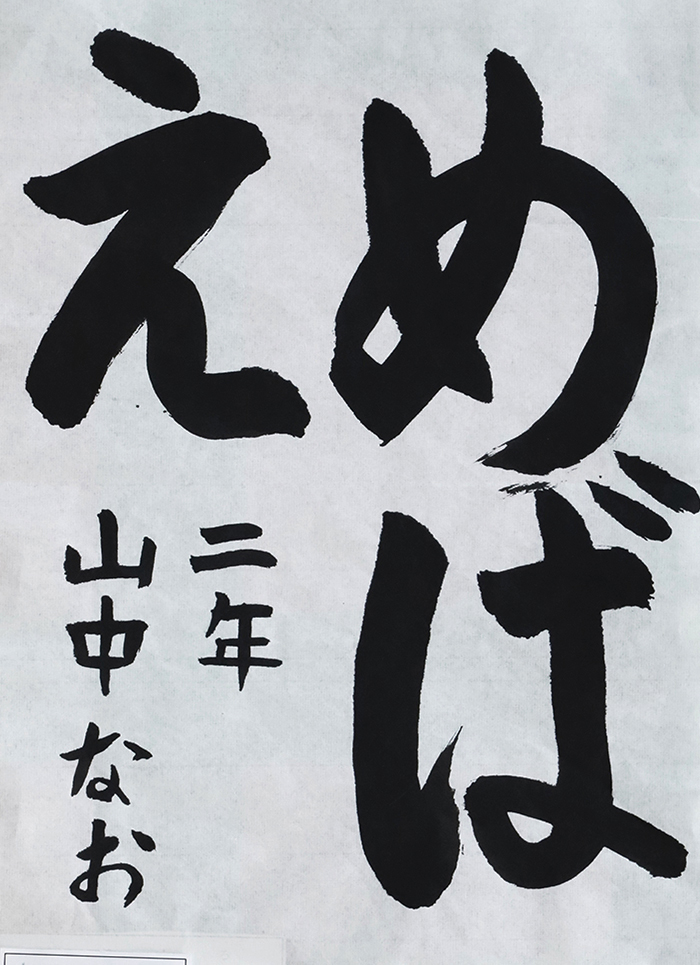 めば
え
二年
山中なお